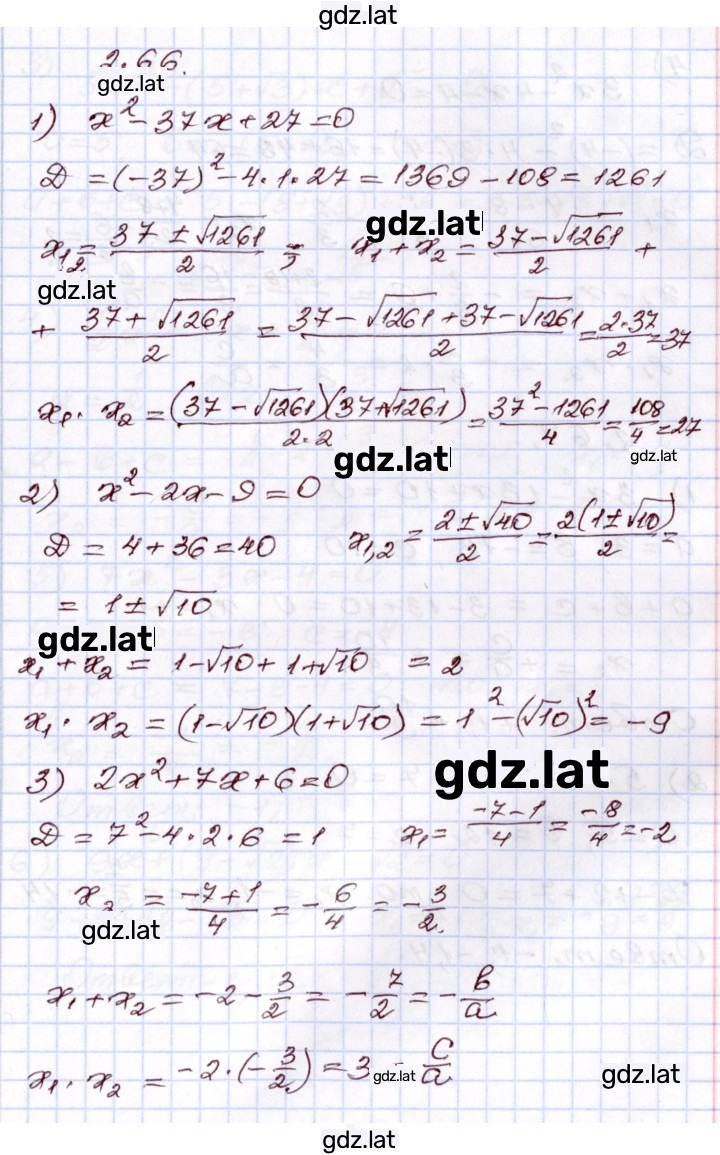 gdz.lat
2.66.
gdz.lat
1) x² - 37x + 27 = 0
D = (-37)² - 4·1·27 = 1369 - 108 = 1261
gdz.lat
x₁,₂ = (37 ± √1261)/2 ; x₁ + x₂ = (37 - √1261)/2 +
gdz.lat
+ (37 + √1261)/2 = (37 - √1261 + 37 - √1261)/2 = (2·37)/2 = 37
x₁ · x₂ = ((37 - √1261)(37 + √1261))/(2·2) = (37² - 1261)/4 = 108/4 = 27
gdz.lat
gdz.lat
2) x² - 2x - 9 = 0
D = 4 + 36 = 40 x₁,₂ = (2 ± √40)/2 = (2(1 ± √10))/2 =
= 1 ± √10
gdz.lat
x₁ + x₂ = 1 - √10 + 1 + √10 = 2
x₁ · x₂ = (1 - √10)(1 + √10) = 1² - (√10)² = -9
gdz.lat
3) 2x² + 7x + 6 = 0
D = 7² - 4·2·6 = 1 x₁ = (-7-1)/4 = -8/4 = -2
x₂ = (-7+1)/4 = -6/4 = -3/2.
gdz.lat
x₁ + x₂ = -2 - 3/2 = -7/2 = -b/a
x₁ · x₂ = -2·(-3/2) = 3 c/a
gdz.lat
gdz.lat
gdz.lat